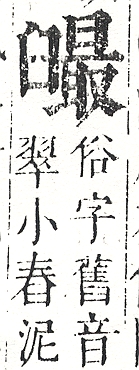 俗字舊音
翠小春泥